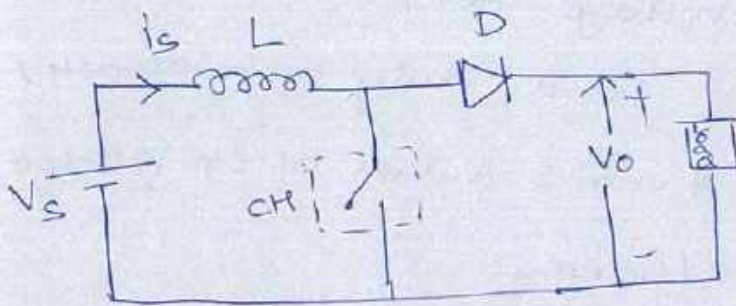 is L D
+
Vs CH Vo LOAD
-